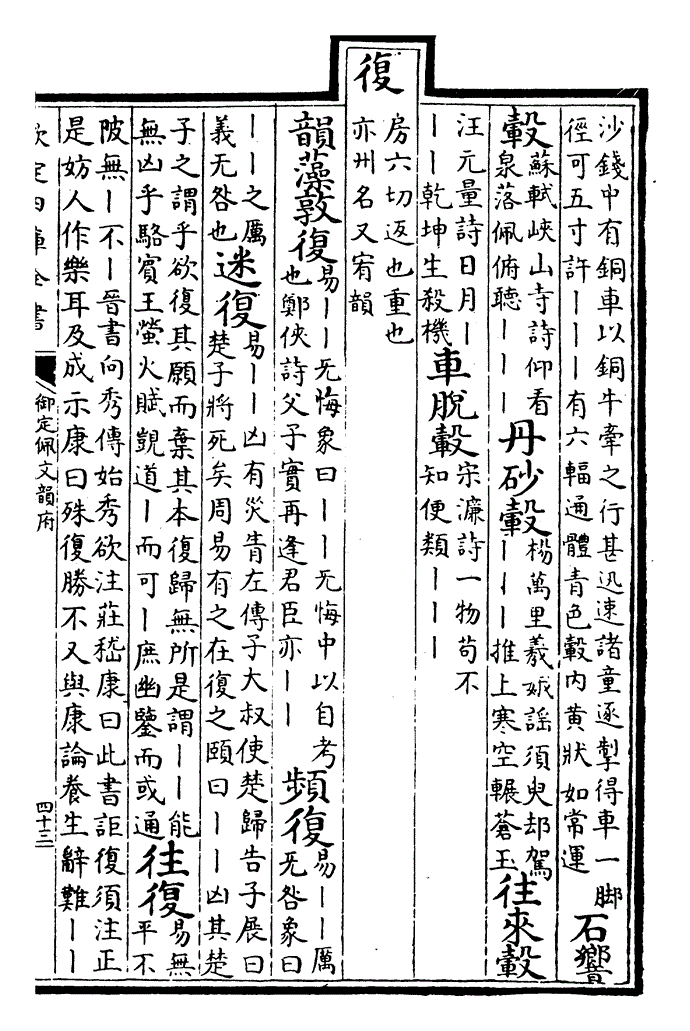 沙錢中有銅車以銅牛牽之行甚迅速諸童逐掣得車一腳
徑可五寸許丨丨丨有六輻通體青色轂内黄狀如常運
石響
轂
蘇軾峽山寺詩仰看
泉落佩俯聽丨丨丨
丹砂轂
楊萬里羲娥謡須臾却駕
丨丨丨推上寒空輾蒼玉
往來轂
汪元量詩日月丨
丨丨乾坤生殺機
車脱轂
宋濂詩一物苟不
知便類丨丨丨
復
房六切返也重也
亦州名又宥韻
韻藻敦復
易丨丨无悔象曰丨丨无悔中以自考
也鄭俠詩父子實再逢君臣亦丨丨
頻復
易丨丨厲
无咎象曰
丨丨之厲
義无咎也
迷復
易丨丨凶有災眚左傳子大叔使楚歸告子展曰
楚子將死矣周易有之在復之頤曰丨丨凶其楚
子之謂乎欲復其願而棄其本復歸無所是謂丨丨能
無凶乎駱賓王螢火賦覬道丨而可丨庶幽鑒而或通
往復
易無
平不
陂無丨不丨晉書向秀傳始秀欲注莊嵇康曰此書詎復須注正
是妨人作樂耳及成示康曰殊復勝不又與康論養生辭難丨丨
欽定四庫全書
御定佩文韻府
四十三